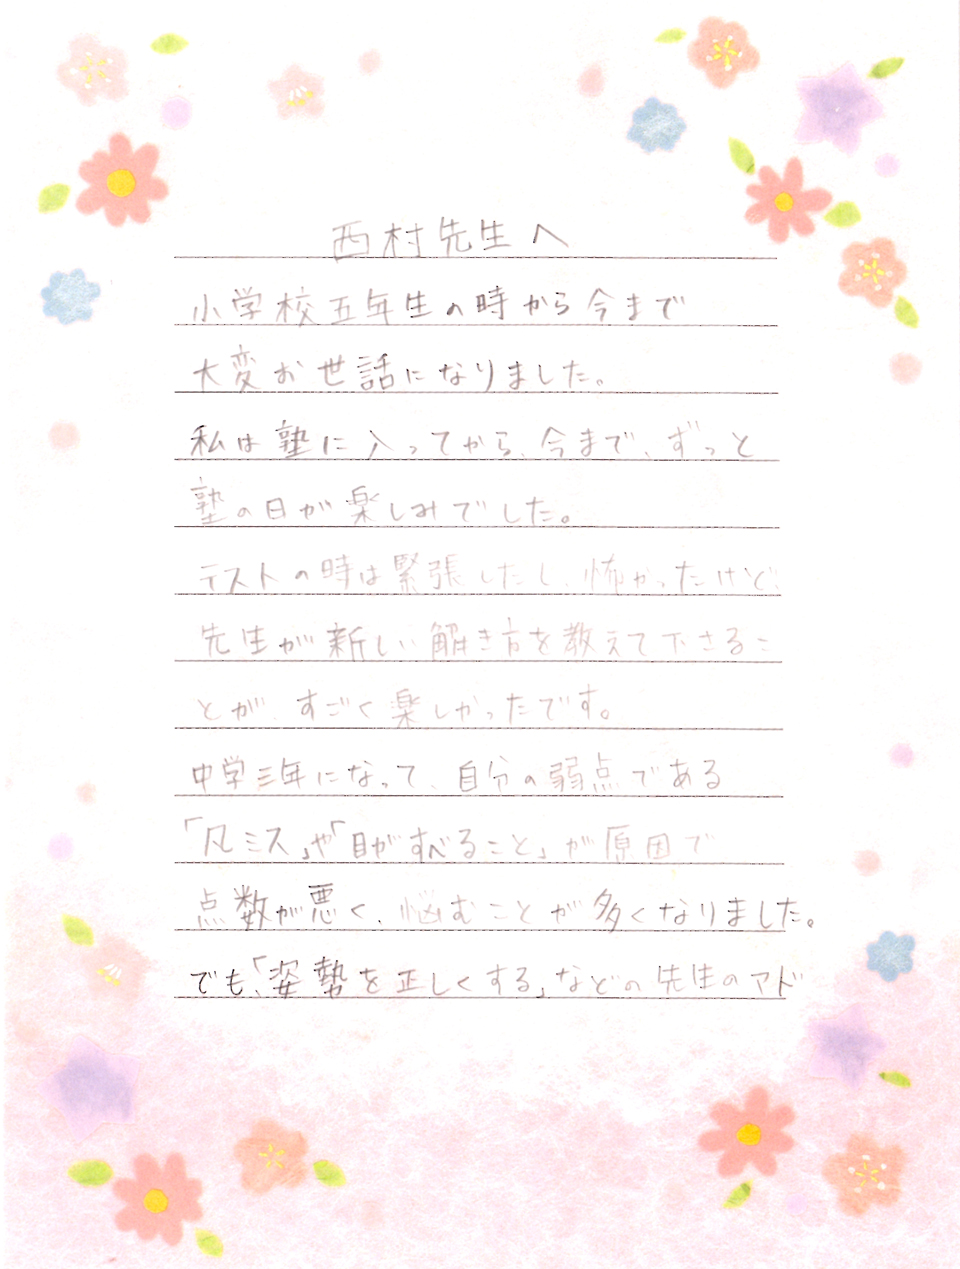 西村先生へ
小学校五年生の時から今まで
大変お世話になりました。
私は塾に入ってから、今まで、ずっと
塾の日が楽しみでした。
テストの時は緊張したし、怖かったけど、
先生が新しい解き方を教えて下さるこ
とが、すごく楽しかったです。
中学三年になって、自分の弱点である
「凡ミス」や「目がすべること」が原因で
点数が悪く、悩むことが多くなりました。
でも、「姿勢を正しくする」などの先生のアド